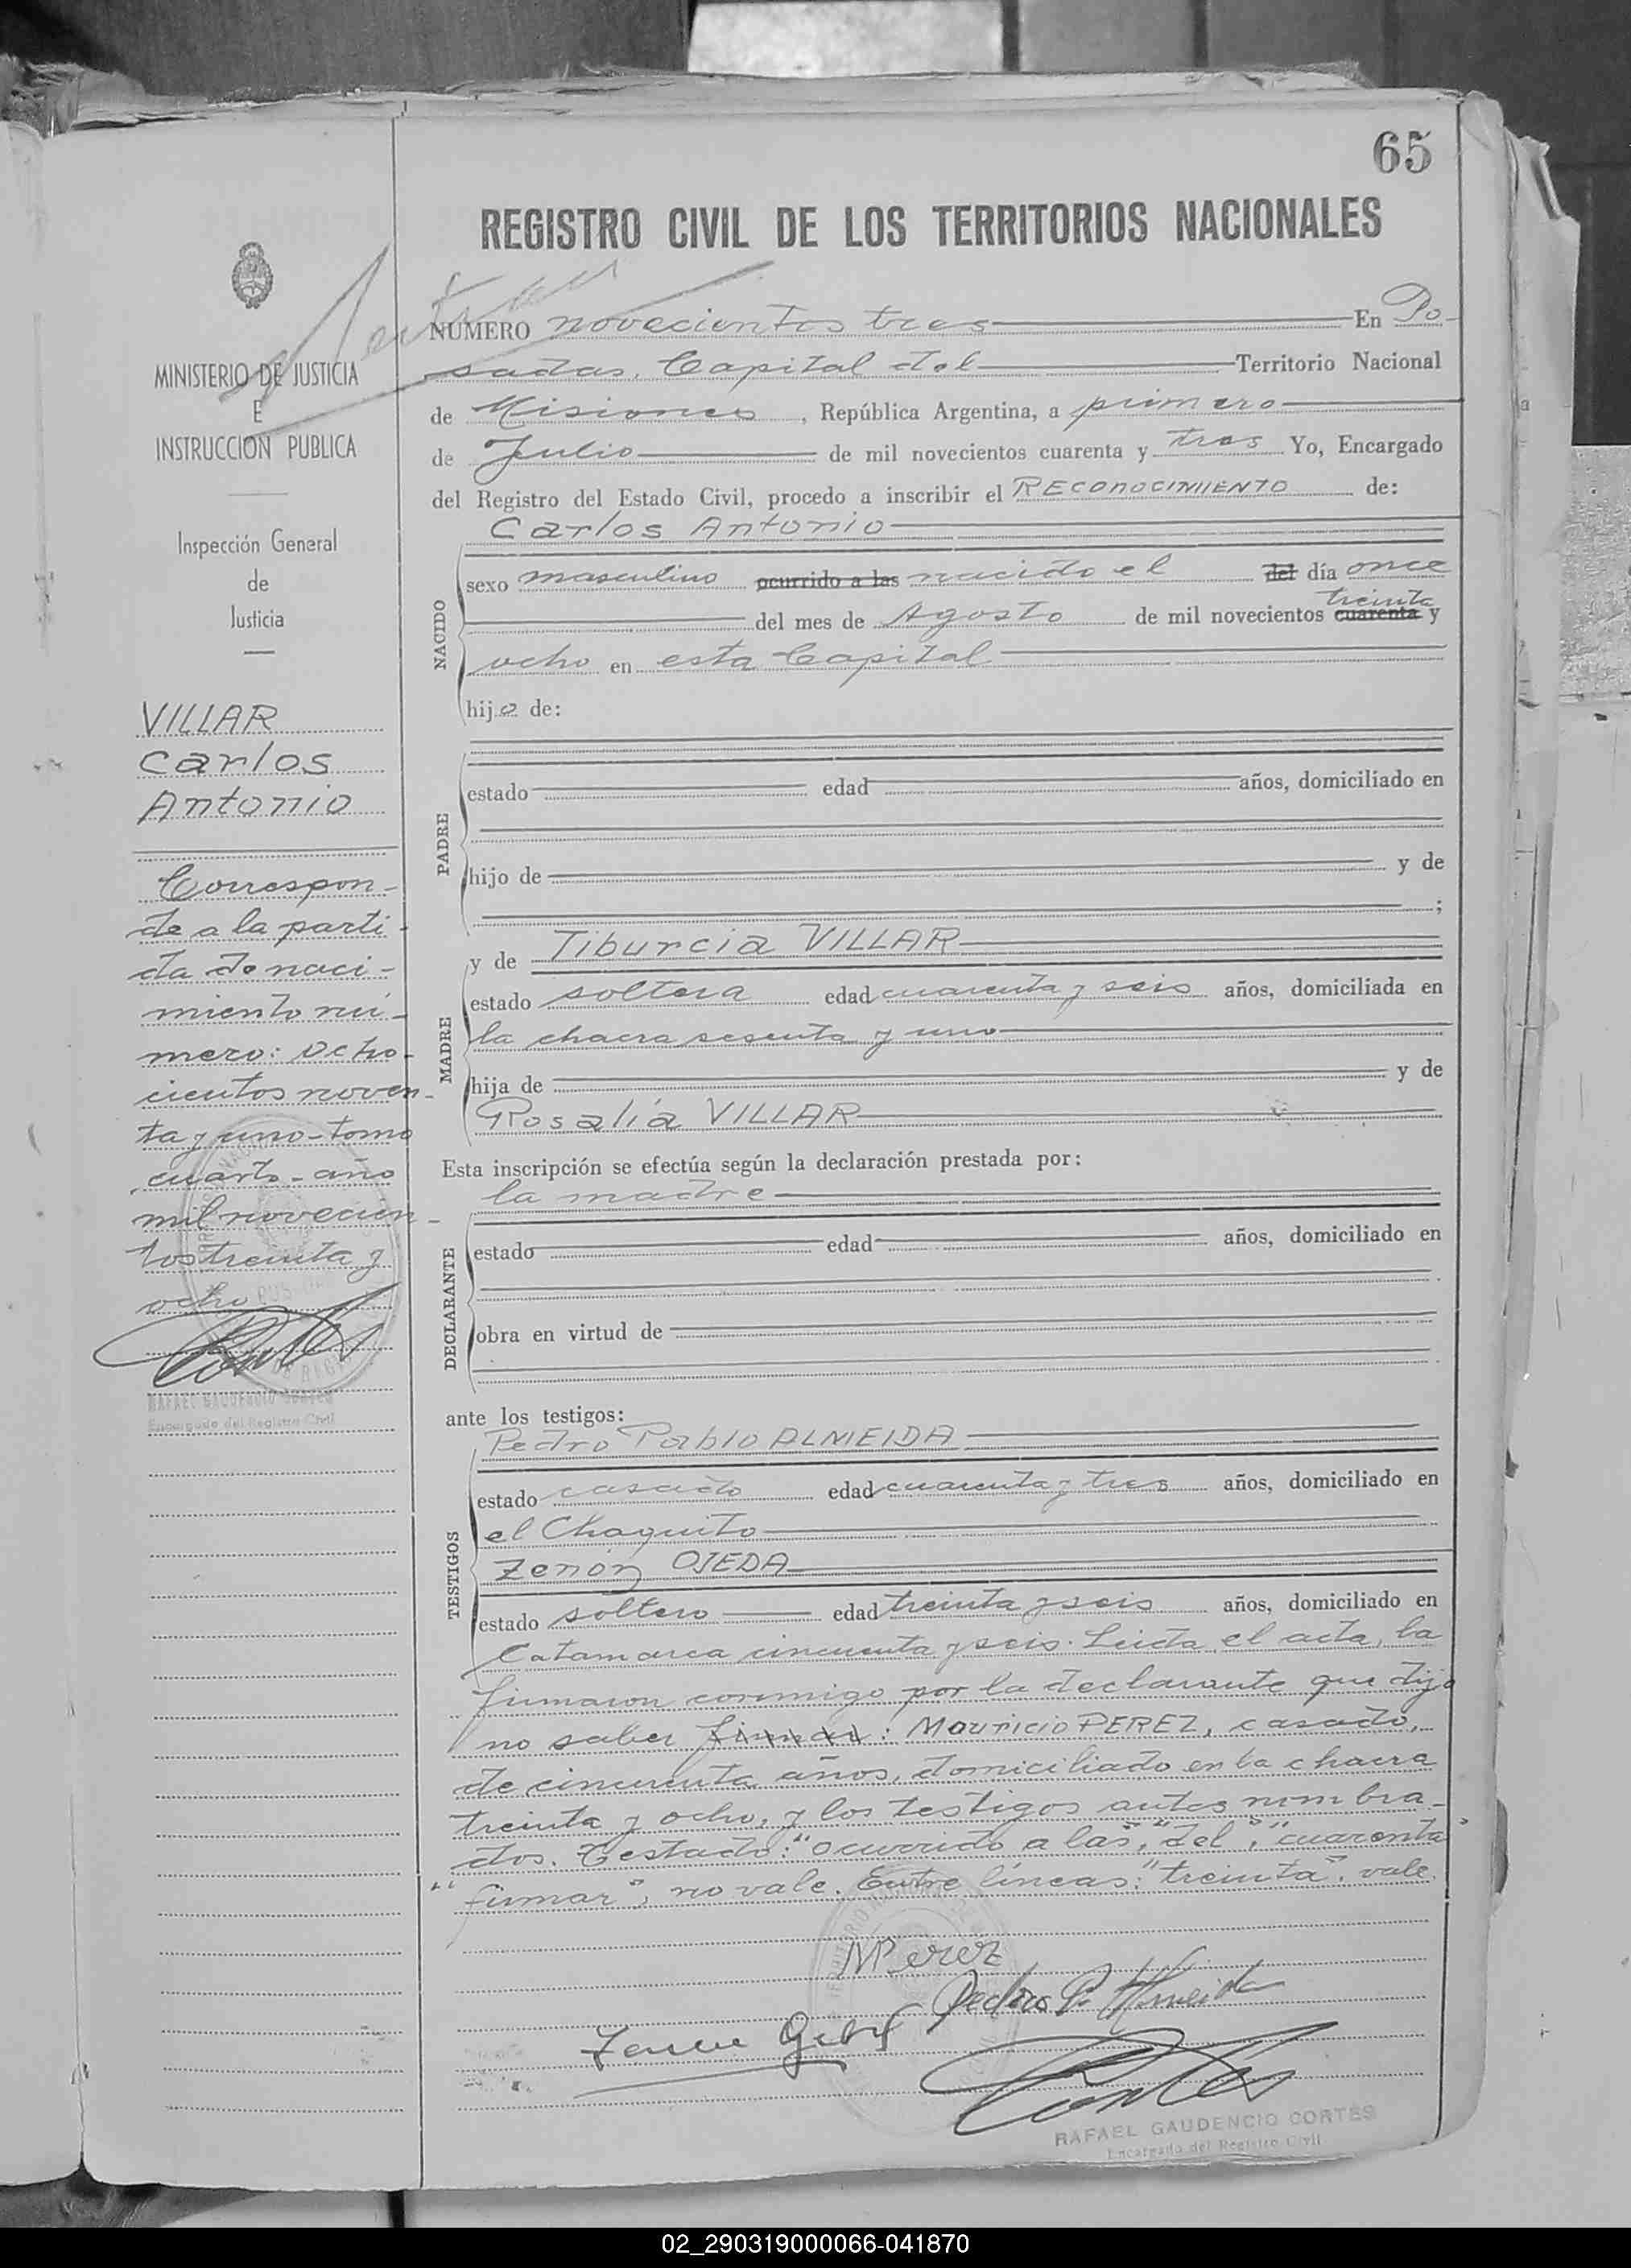 65
REGISTRO CIVIL DE LOS TERRITORIOS NACIONALES
MINISTERIO DE JUSTICIA
E
INSTRUCCION PUBLICA
Inspección General
de
Justicia
VILLAR
Carlos
Antonio
Correspon-
de a la parti-
da de naci-
miento nú-
mero: ocho-
cientos noven-
ta y uno-tomo
cuarto-año
mil novecien-
tos treinta y
ocho
RAFAEL GAUDENCIO CORTES
Encargado del Registro Civil
NUMERO novecientos tres En Po-
sadas, Capital del Territorio Nacional
de Misiones, República Argentina, a primero
de Julio de mil novecientos cuarenta y tres Yo, Encargado
del Registro del Estado Civil, procedo a inscribir el RECONOCIMIENTO de:
Carlos Antonio
NACIDO
sexo masculino ocurrido a las nacido el del día once
treinta
del mes de Agosto de mil novecientos cuarenta y
ocho en esta Capital
hijo de:
PADRE
estado edad años, domiciliado en
hijo de y de
;
MADRE
y de Tiburcia VILLAR
estado soltera edad cuarenta y seis años, domiciliada en
la chacra sesenta y uno
hija de y de
Rosalía VILLAR
Esta inscripción se efectúa según la declaración prestada por:
la madre
DECLARANTE
estado edad años, domiciliado en
obra en virtud de
ante los testigos:
Pedro Pablo ALMEIDA
TESTIGOS
estado casado edad cuarenta y tres años, domiciliado en
el Chaquito
Zenón OJEDA
estado soltero edad treinta y seis años, domiciliado en
Catamarca cincuenta y seis. Leida el acta, la
firmaron conmigo por la declarante que dijo
no saber firmar: Mauricio PEREZ, casado,
de cincuenta años, domiciliado en la chacra
treinta y ocho, y los testigos antes nombra-
dos. Testado: "ocurrido a las", "del", "cuarenta"
"firmar", no vale. Entre líneas: "treinta", vale.
MPerez
Pedro P. Almeida
Cortes
RAFAEL GAUDENCIO CORTES
Encargado del Registro Civil
02_290319000066-041870